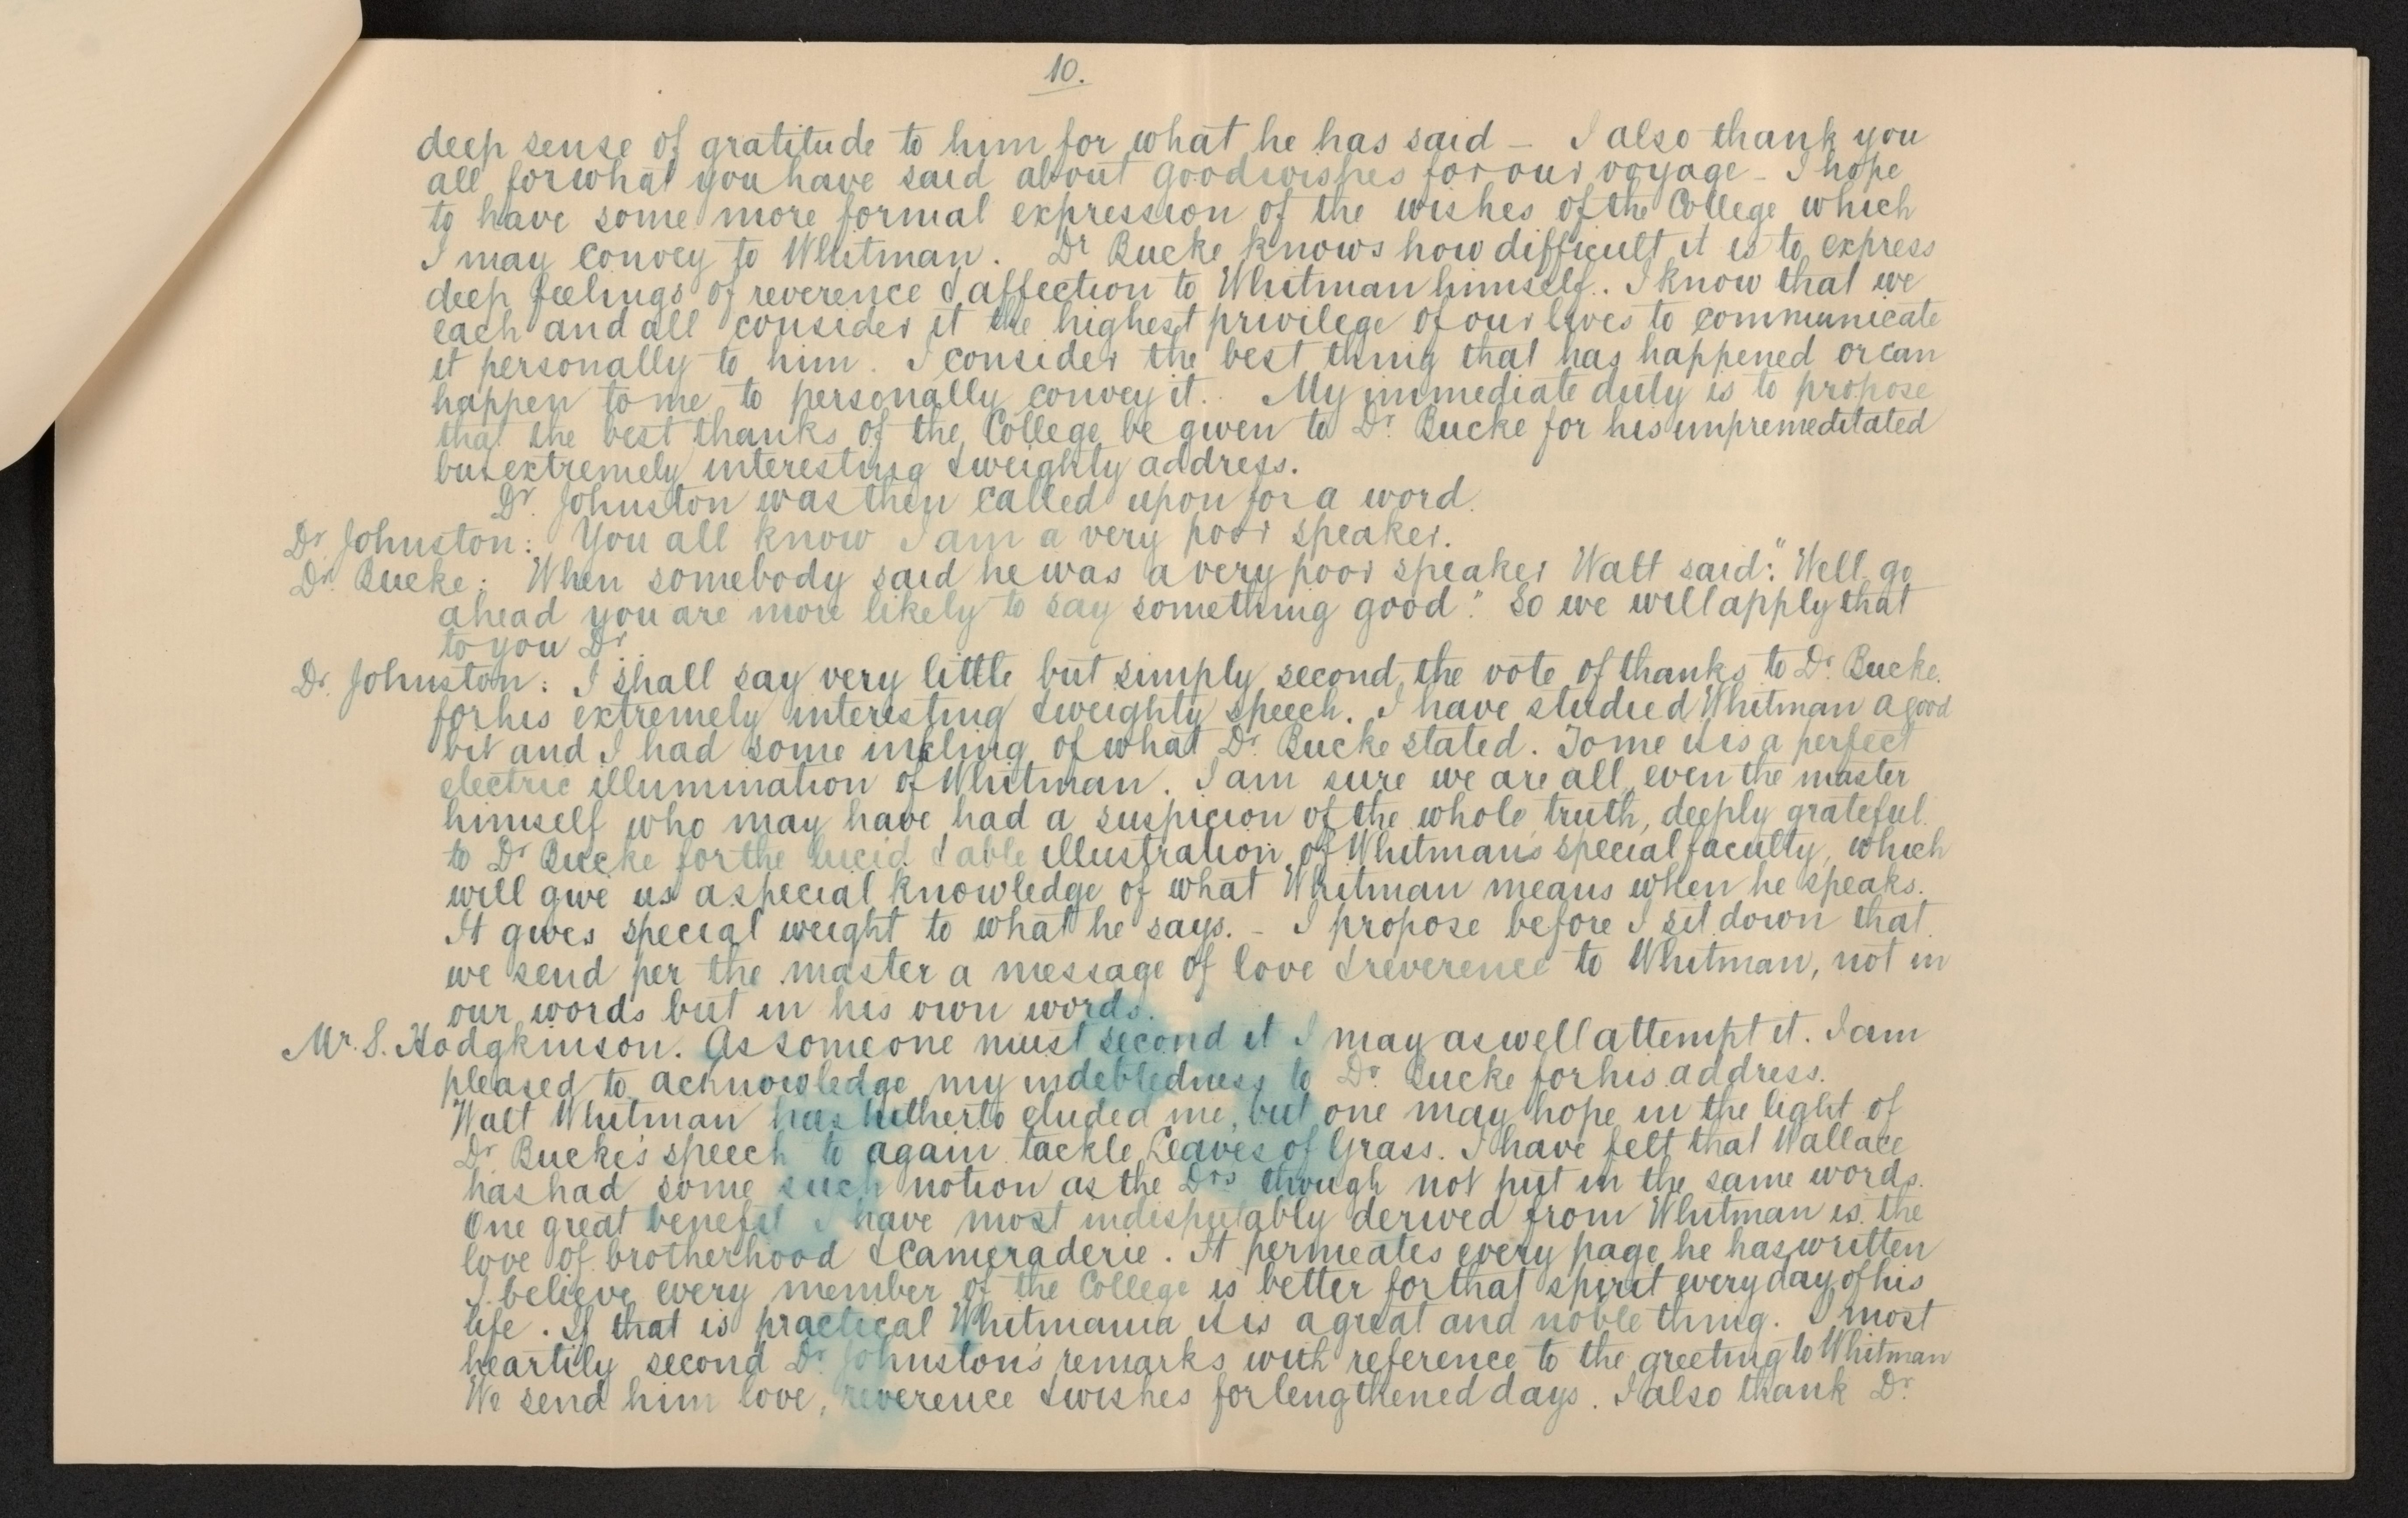 10.
deep sense of gratitude to him for what he has said – I also thank you
all for what you have said about good wishes for our voyage – I hope
to have some more formal expression of the wishes of the College which
I may convey to Whitman. Dr Bucke knows how difficult it is to express
deep feelings of reverence & affection to Whitman himself. I know that we
each and all consider it the highest privilege of our lives to communicate
it personally to him. I consider the best thing that has happened or can
happen to me to personally convey it. My immediate duty is to propose
that the best thanks of the College be given to Dr. Bucke for his unpremeditated
but extremely interesting & weighty address.
Dr. Johnston was then called upon for a word.
Dr. Johnston: You all know I am a very poor speaker.
Dr. Bucke: When somebody said he was a very poor speaker Walt said: "Well go
ahead you are more likely to say something good." So we will apply that
to you Dr.
Dr. Johnston: I shall say very little but simply second the vote of thanks to Dr. Bucke
for his extremely interesting & weighty speech. I have studied Whitman a good
bit and I had some inkling of what Dr. Bucke stated. To me it is a perfect
electric illumination of Whitman. I am sure we are all, even the master
himself who may have had a suspicion of the whole truth, deeply grateful
to Dr Bucke for the lucid & able illustration of Whitman's special faculty, which
will give us a special knowledge of what Whitman means when he speaks.
It gives special weight to what he says. – I propose before I sit down that
we send per the master a message of love & reverence to Whitman, not in
our words but in his own words.
Mr. S. Hodgkinson. As someone must second it I may as well attempt it. I am
pleased to acknowledge my indebtedness to Dr. Bucke for his address.
Walt Whitman has hitherto eluded me, but one may hope in the light of
Dr Bucke's speech to again tackle Leaves of Grass. I have felt that Wallace
has had some such notion as the Drs though not put in the same words.
One great benefit I have most indisputably derived from Whitman is the
love of brotherhood & cameraderie. It permeates every page he has written
I believe every member of the College is better for that spirit every day of his
life. If that is practical Whitmania it is a great and noble thing. I most
heartily second Dr Johnston's remarks with reference to the greeting to Whitman
We send him love, reverence & wishes for lengthened days. I also thank Dr.